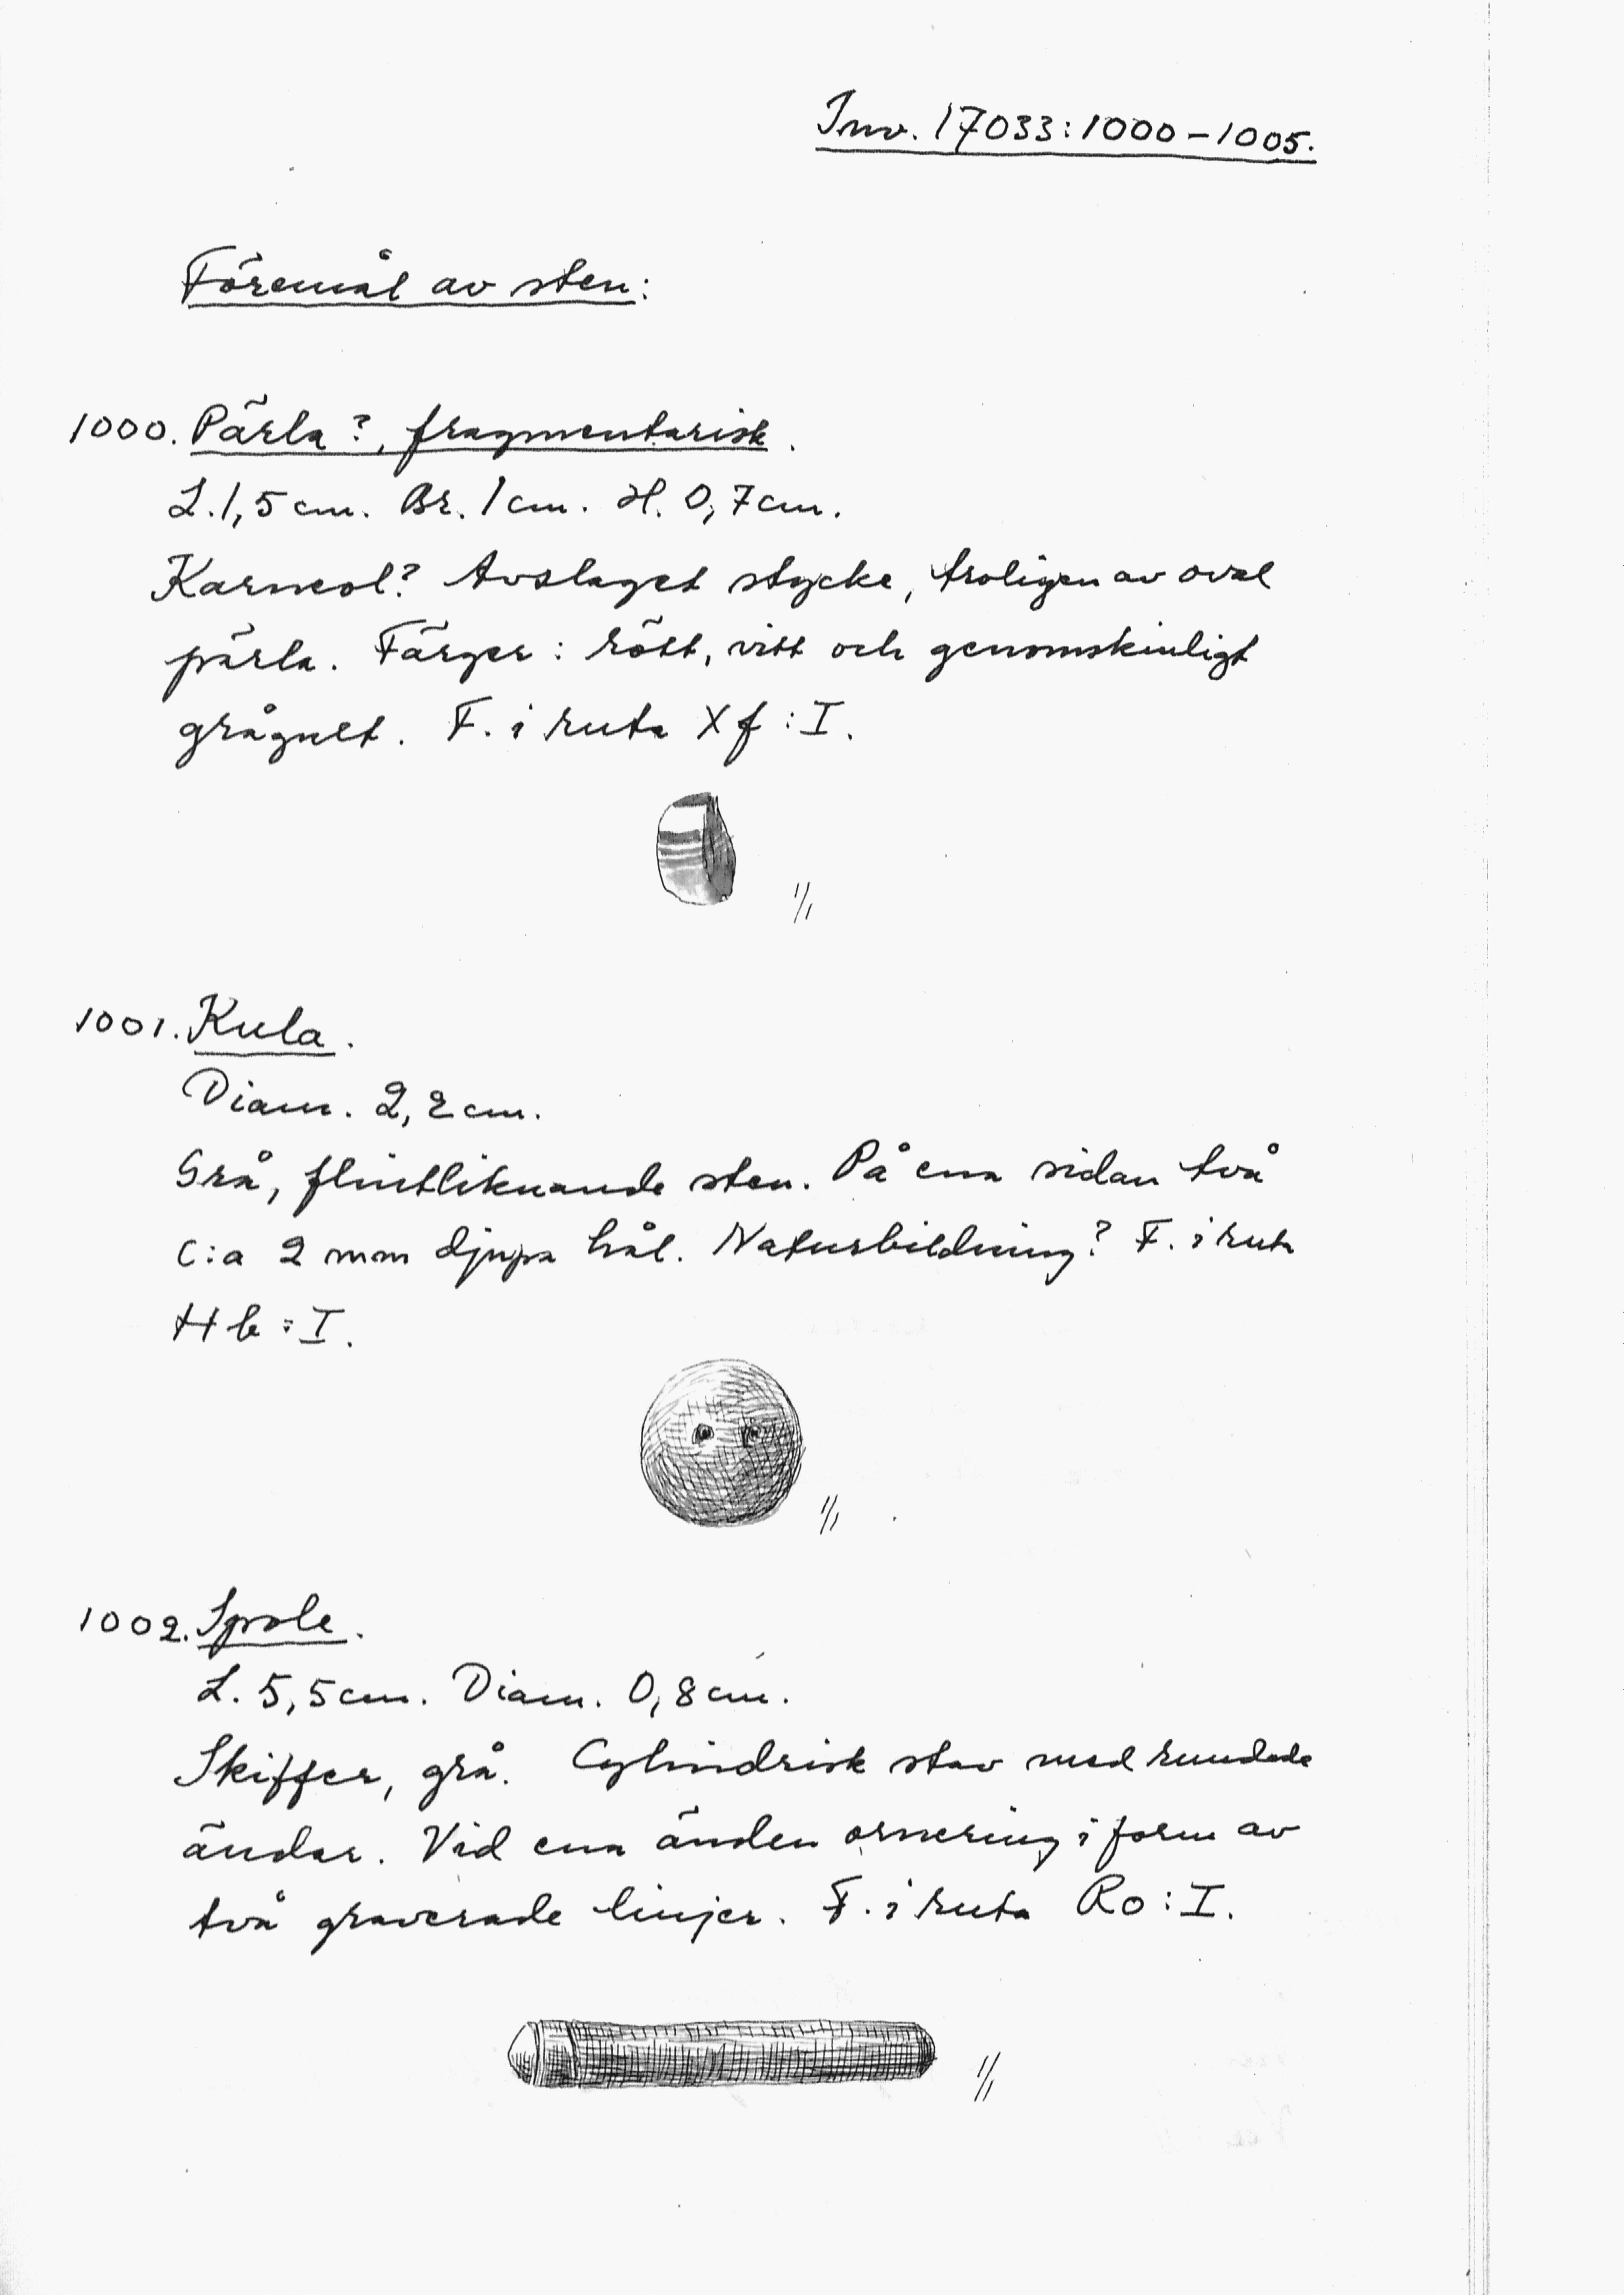 Inv. 17033:1000-1005.
Föremål av sten:
1000. Pärla?, fragmentarisk.
L. 1,5 cm. Br. 1 cm. H. 0,7 cm.
Karneol? Avslaget stycke, troligen av oval
pärla. Färger: rött, vitt och genomskinligt
grågult. F. i ruta Xf:I.
1/1
1001. Kula.
Diam. 2,2 cm.
Grå, flintliknande sten. På ena sidan två
c:a 2 mm djupa hål. Naturbildning? F. i ruta
Hb:I.
1/1
1002. Spole.
L. 5,5 cm. Diam. 0,8 cm.
Skiffer, grå. Cylindrisk stav med rundade
ändar. Vid ena änden ornering i form av
två graverade linjer. F. i ruta Ro:I.
1/1